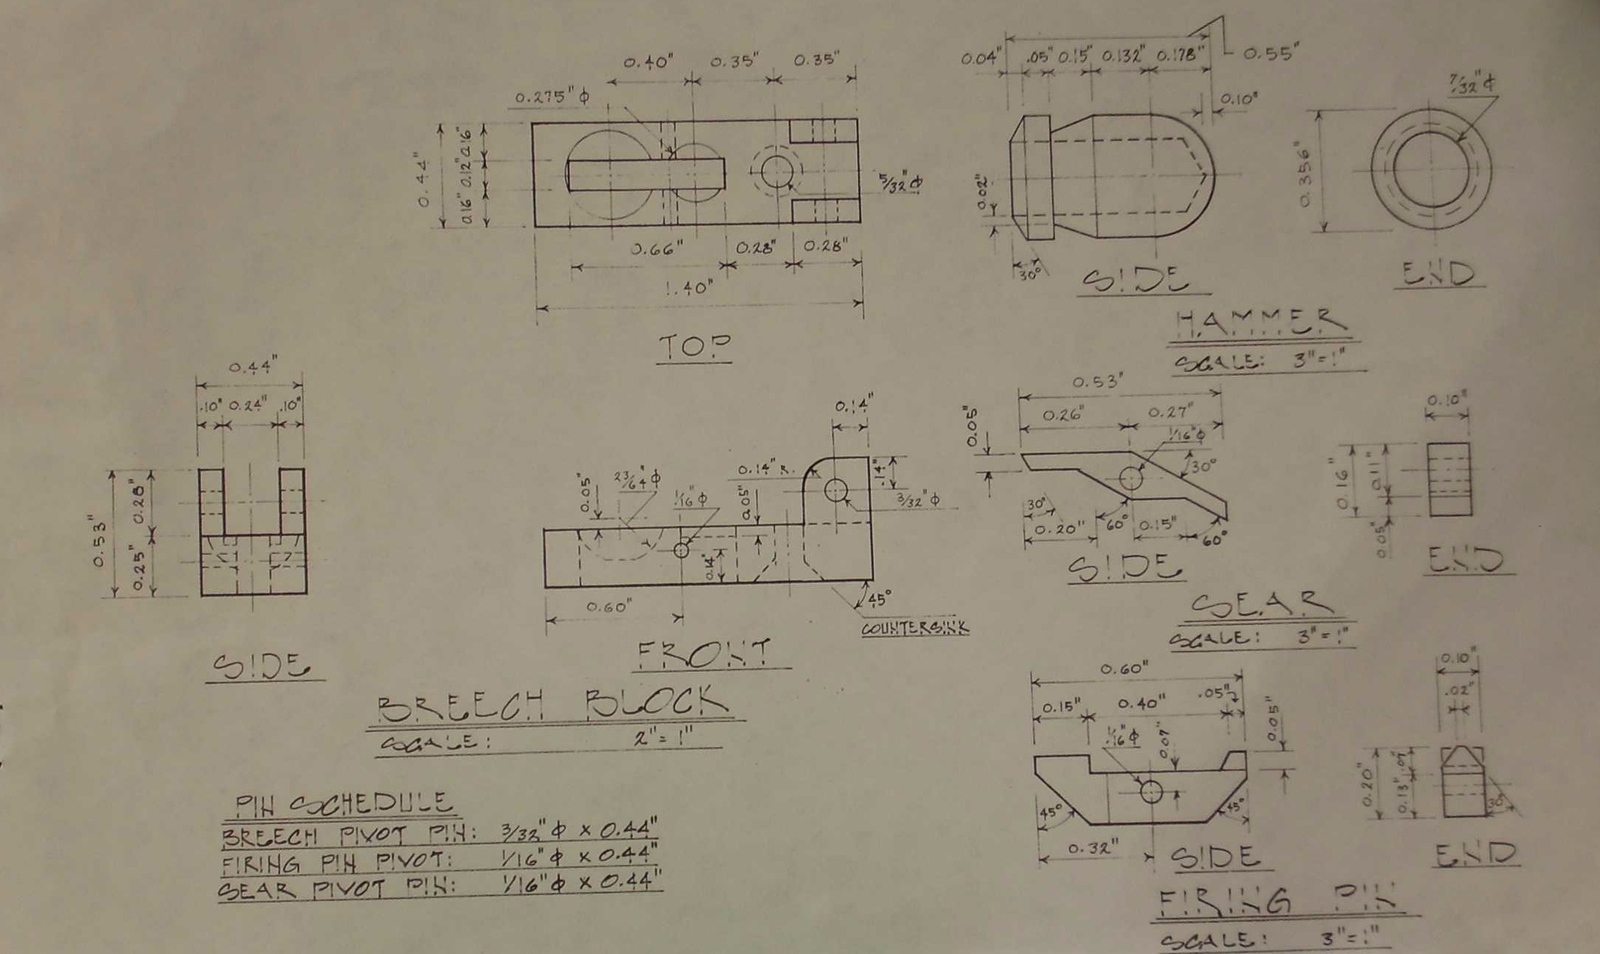 0.40" 0.35" 0.35"
0.275" ϕ
0.44"
0.16" 0.12" 0.16"
5/32" ϕ
0.66" 0.28" 0.28"
1.40"
TOP
0.04" .05" 0.15" 0.132" 0.178" 0.55"
0.10"
0.02"
30°
SIDE
0.356"
7/32" ϕ
END
HAMMER
SCALE: 3"=1"
0.44"
.10" 0.24" .10"
0.53"
0.28"
0.25"
SIDE
0.14"
0.05"
23/64" ϕ
1/16" ϕ
0.14" R.
0.05"
.14"
3/32" ϕ
0.14"
0.60"
45°
COUNTERSINK
FRONT
BREECH BLOCK
SCALE: 2"=1"
0.53"
0.26" 0.27"
0.05"
1/16" ϕ
30°
30°
0.20"
60°
0.15"
60°
SIDE
0.10"
0.16"
0.11"
0.05"
END
SEAR
SCALE: 3"=1"
0.60"
0.15" 0.40" .05"
1/16" ϕ
0.07"
0.05"
45°
45°
0.32"
SIDE
0.10"
.02"
0.20"
0.13" .07"
30°
END
FIRING PIN
SCALE: 3"=1"
PIN SCHEDULE
BREECH PIVOT PIN: 3/32" ϕ x 0.44"
FIRING PIN PIVOT: 1/16" ϕ x 0.44"
SEAR PIVOT PIN: 1/16" ϕ x 0.44"